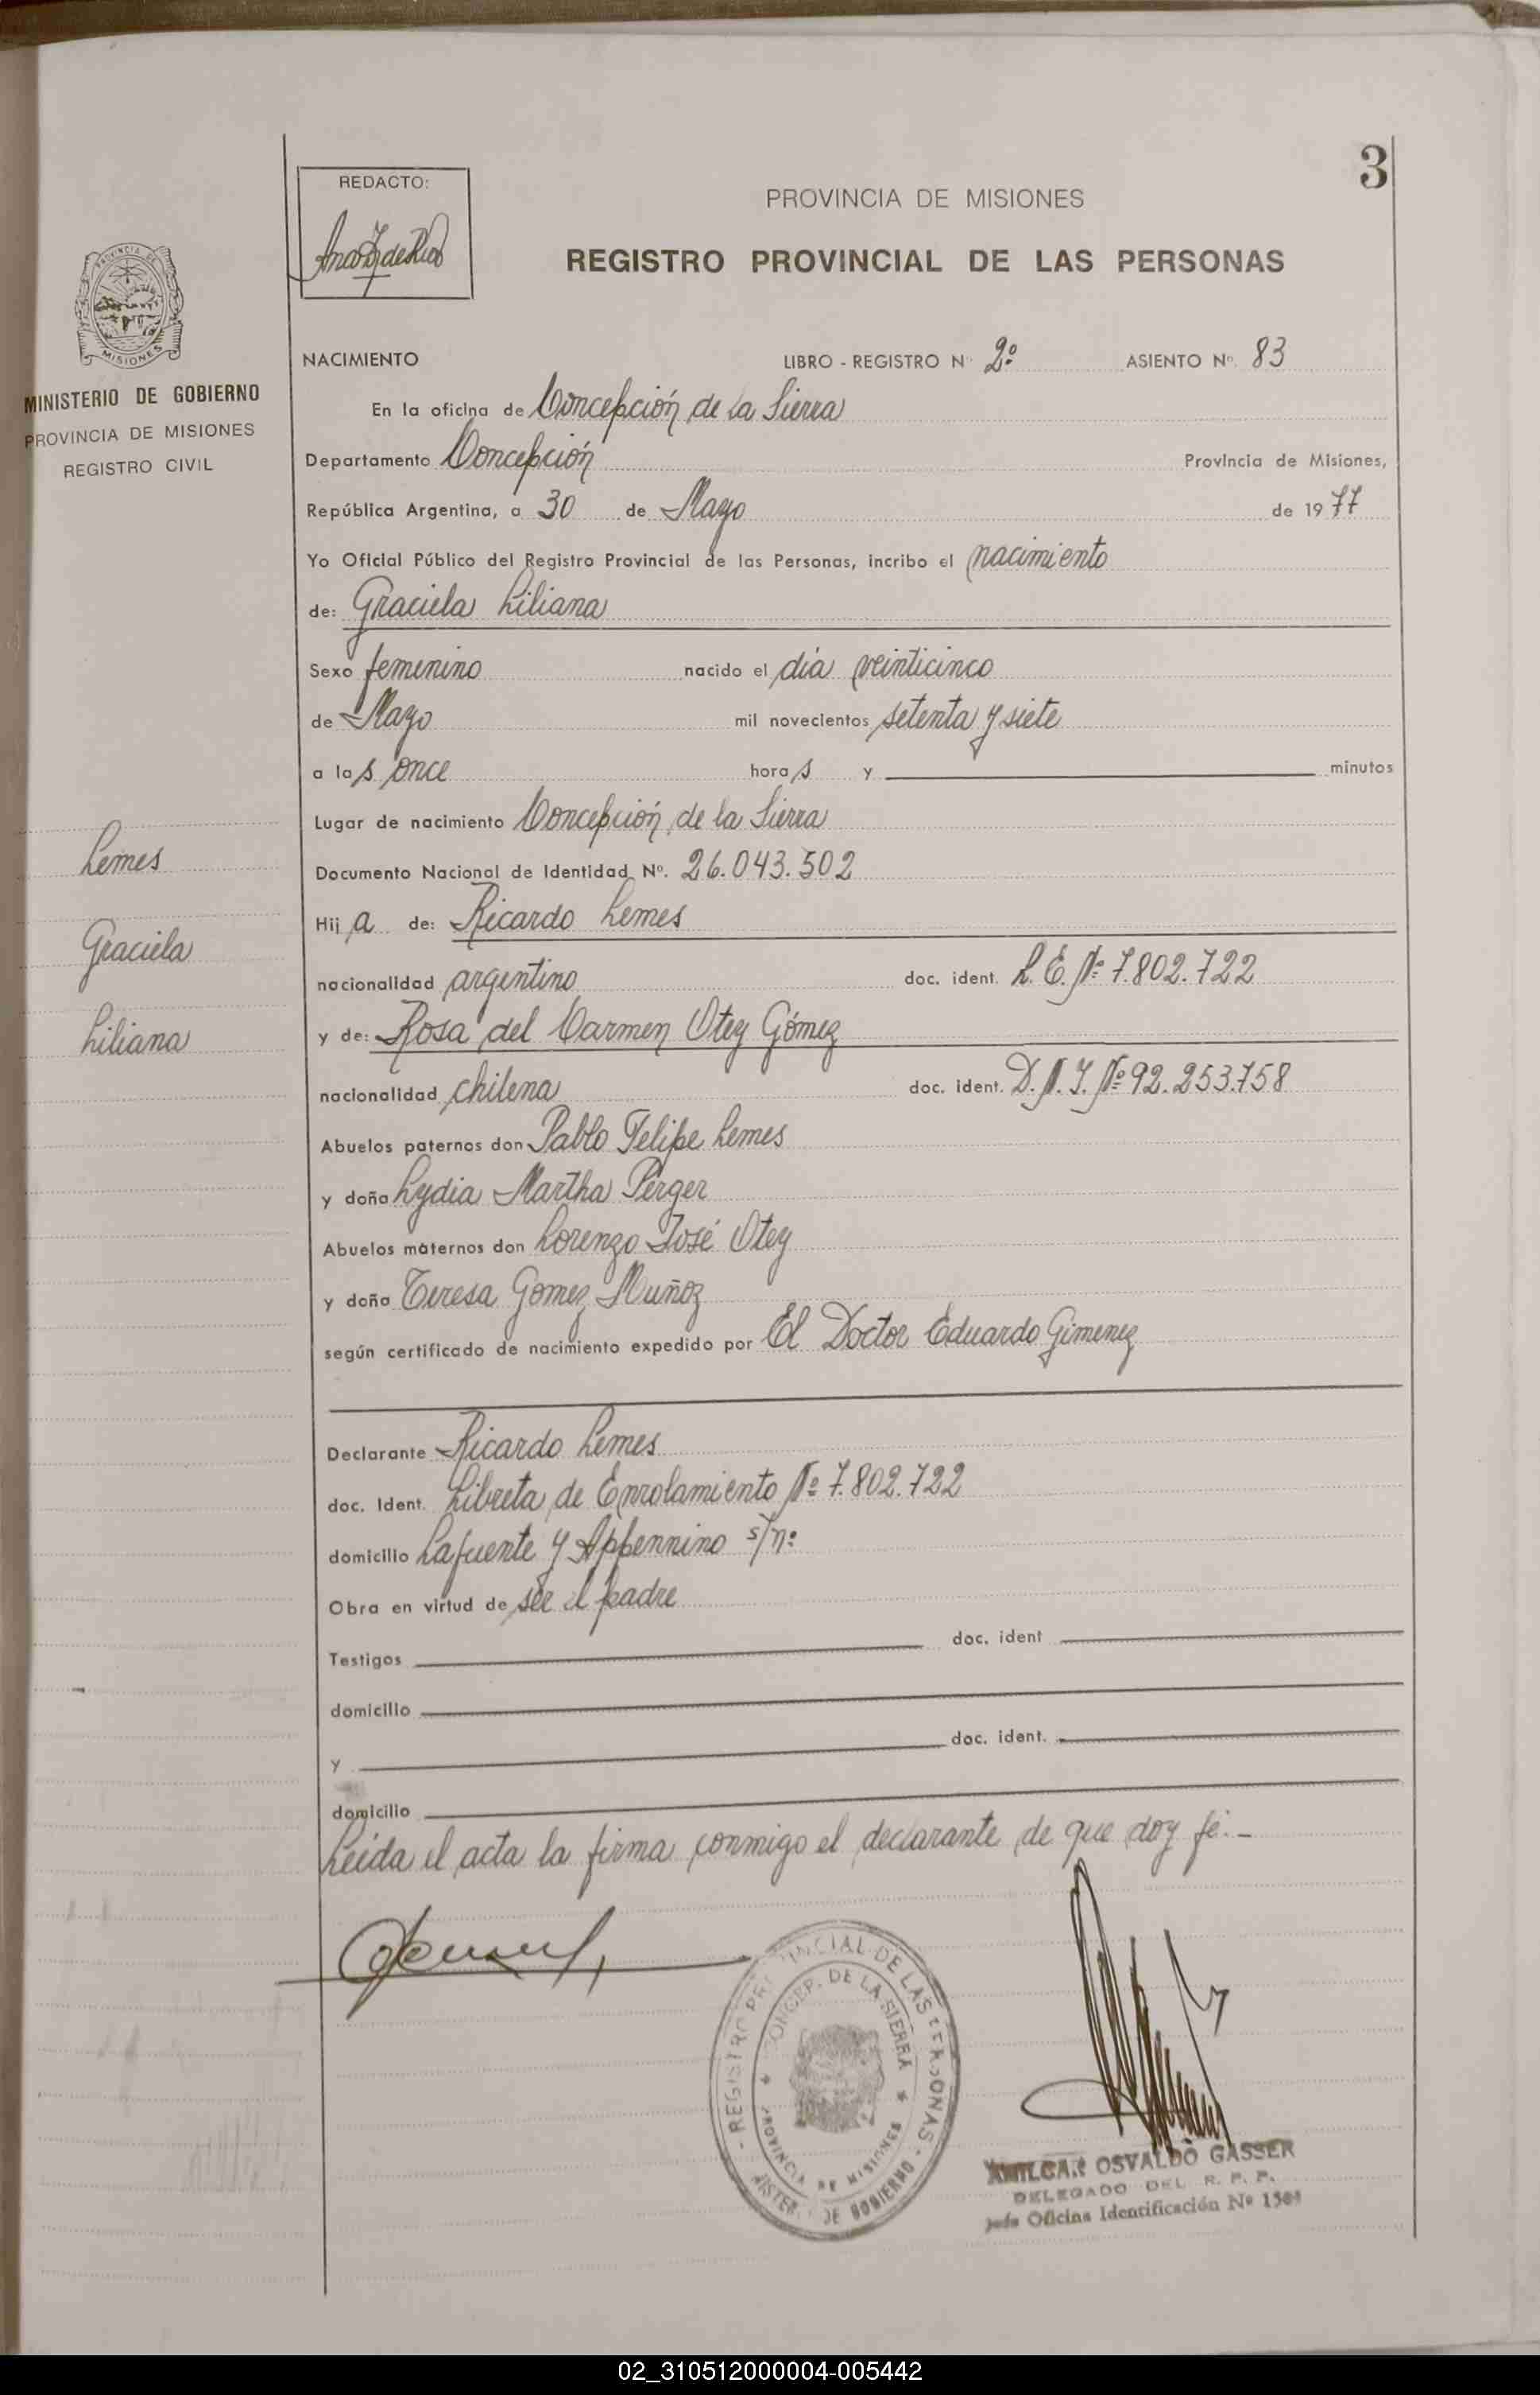 3
REDACTO:
PROVINCIA DE MISIONES
REGISTRO PROVINCIAL DE LAS PERSONAS
PROVINCIA DE
MISIONES
MINISTERIO DE GOBIERNO
PROVINCIA DE MISIONES
REGISTRO CIVIL
NACIMIENTO LIBRO - REGISTRO Nº 2º ASIENTO Nº. 83
En la oficina de Concepción de la Sierra
Departamento Concepción Provincia de Misiones,
República Argentina, a 30 de Mayo de 1977
Yo Oficial Público del Registro Provincial de las Personas, incribo el nacimiento
de: Graciela Liliana
Sexo femenino nacido el día veinticinco
de Mayo mil novecientos setenta y siete
a las once horas y minutos
Lugar de nacimiento Concepción de la Sierra
Lemes
Documento Nacional de Identidad Nº. 26.043.502
Hija de: Ricardo Lemes
Graciela
nacionalidad argentino doc. ident. L.E. Nº 7.802.722
y de: Rosa del Carmen Otey Gómez
Liliana
nacionalidad chilena doc. ident. D.N.I. Nº 92.253.758
Abuelos paternos don Pablo Felipe Lemes
y doña Lydia Martha Perger
Abuelos maternos don Lorenzo José Otey
y doña Teresa Gomez Muñoz
según certificado de nacimiento expedido por El Doctor Eduardo Gimenez
Declarante Ricardo Lemes
doc. Ident. Libreta de Enrolamiento Nº 7.802.722
domicilio Lafuente y Appennino s/nº
Obra en virtud de ser el padre
Testigos doc. ident
domicilio
y doc. ident.
domicilio
Leida el acta la firma conmigo el declarante de que doy fé.-
REGISTRO PROVINCIAL DE LAS PERSONAS
CONCEP. DE LA SIERRA
PROVINCIA DE MISIONES
MISTER. DE GOBIERNO
AMILCAR OSVALDO GASSER
DELEGADO DEL R. P. P.
Jefe Oficina Identificación Nº
02_310512000004-005442